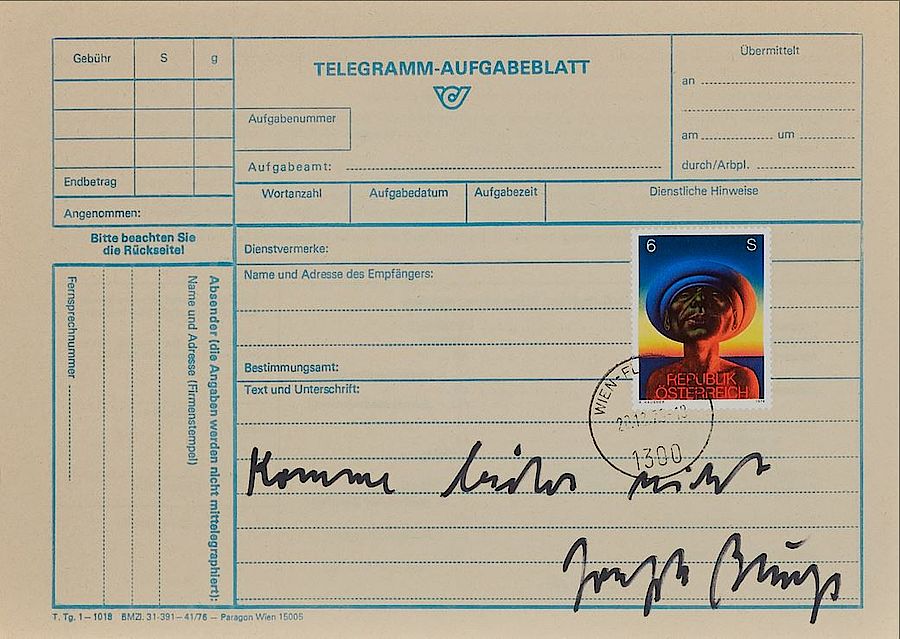 Gebühr S g
TELEGRAMM-AUFGABEBLATT
Übermittelt
an
am um
durch/Arbpl.
Aufgabenummer
Aufgabeamt:
Endbetrag
Angenommen:
Wortanzahl Aufgabedatum Aufgabezeit Dienstliche Hinweise
Bitte beachten Sie
die Rückseite!
Dienstvermerke:
Name und Adresse des Empfängers:
Bestimmungsamt:
Text und Unterschrift:
Absender (die Angaben werden nicht mittelegraphiert):
Name und Adresse (Firmenstempel)
Fernsprechnummer
6 S
REPUBLIK
ÖSTERREICH
WIEN-FL
1300
Komme leider nicht
Joseph Beuys
T. Tg. 1 — 1018 BMZl. 31-391 — 41/76 — Paragon Wien 15005